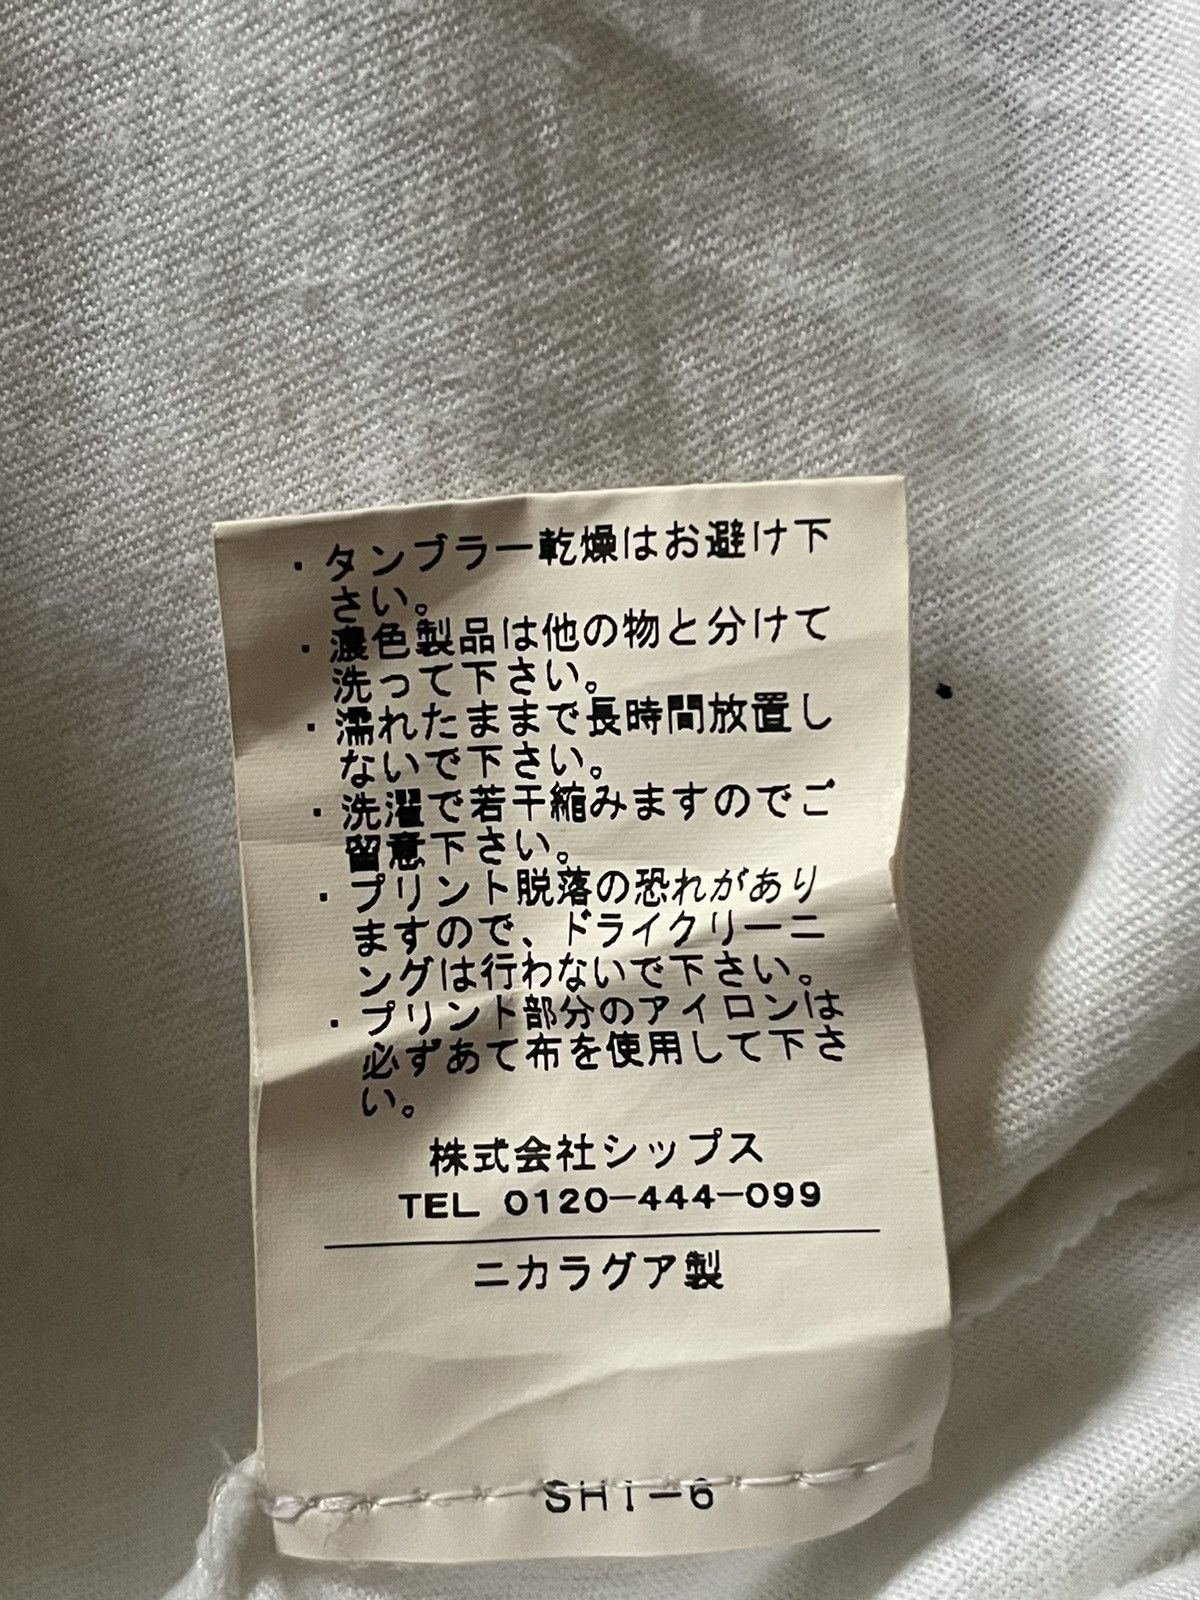 ・タンブラー乾燥はお避け下
さい。
・濃色製品は他の物と分けて
洗って下さい。
・濡れたままで長時間放置し
ないで下さい。
・洗濯で若干縮みますのでご
留意下さい。
・プリント脱落の恐れがあり
ますので、ドライクリーニ
ングは行わないで下さい。
・プリント部分のアイロンは
必ずあて布を使用して下さ
い。
株式会社シップス
TEL 0120-444-099
ニカラグア製
SHI-6